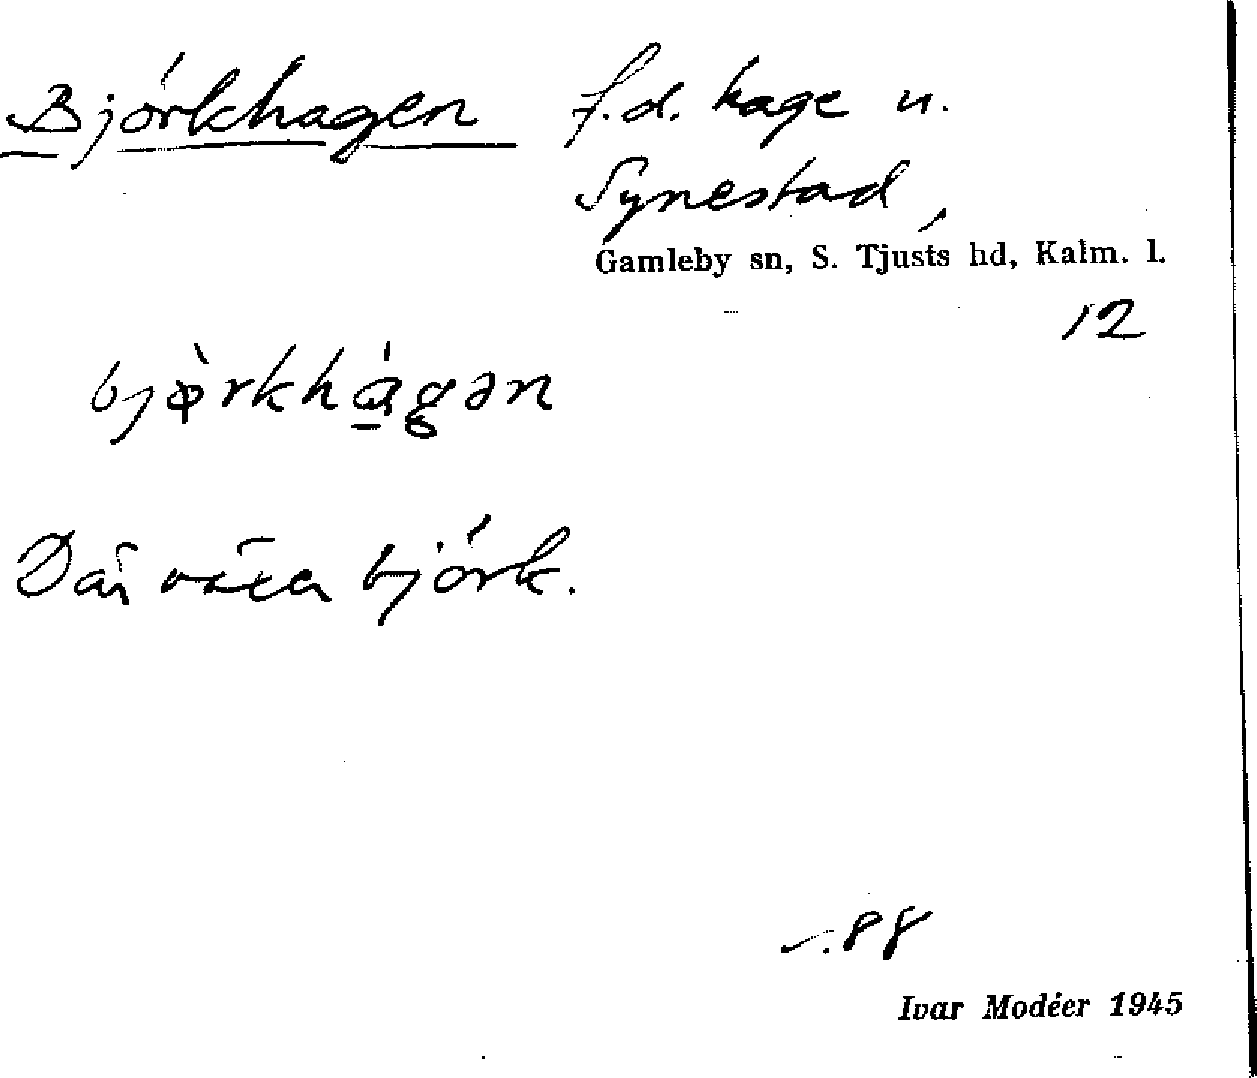 Björkhagen f.d. hage u.
Synestad,
Gamleby sn, S. Tjusts hd, Kalm. l.
12
bjòrkhágən
Där växer björk.
88
Ivar Modéer 1945